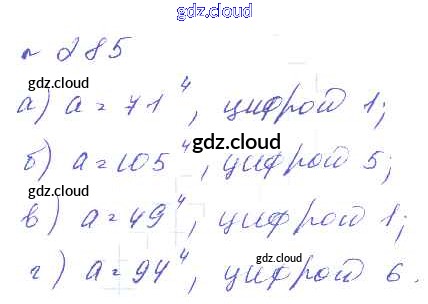 gdz.cloud
№ 285
gdz.cloud
а) a = 71⁴, цифрой 1;
gdz.cloud
б) a = 105⁴, цифрой 5;
gdz.cloud
в) a = 49⁴, цифрой 1;
gdz.cloud
г) a = 94⁴, цифрой 6.
gdz.cloud